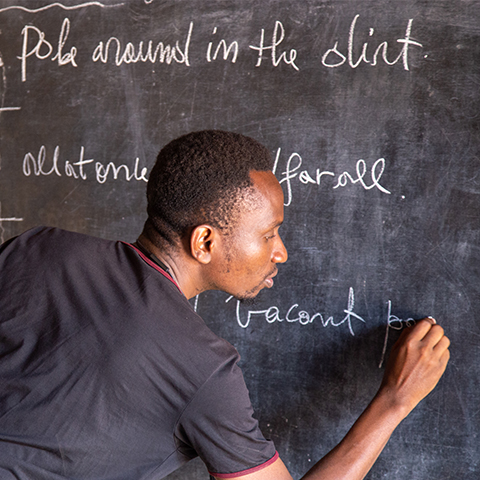 poke around in the dirt.
all at once /for all.
vacant p